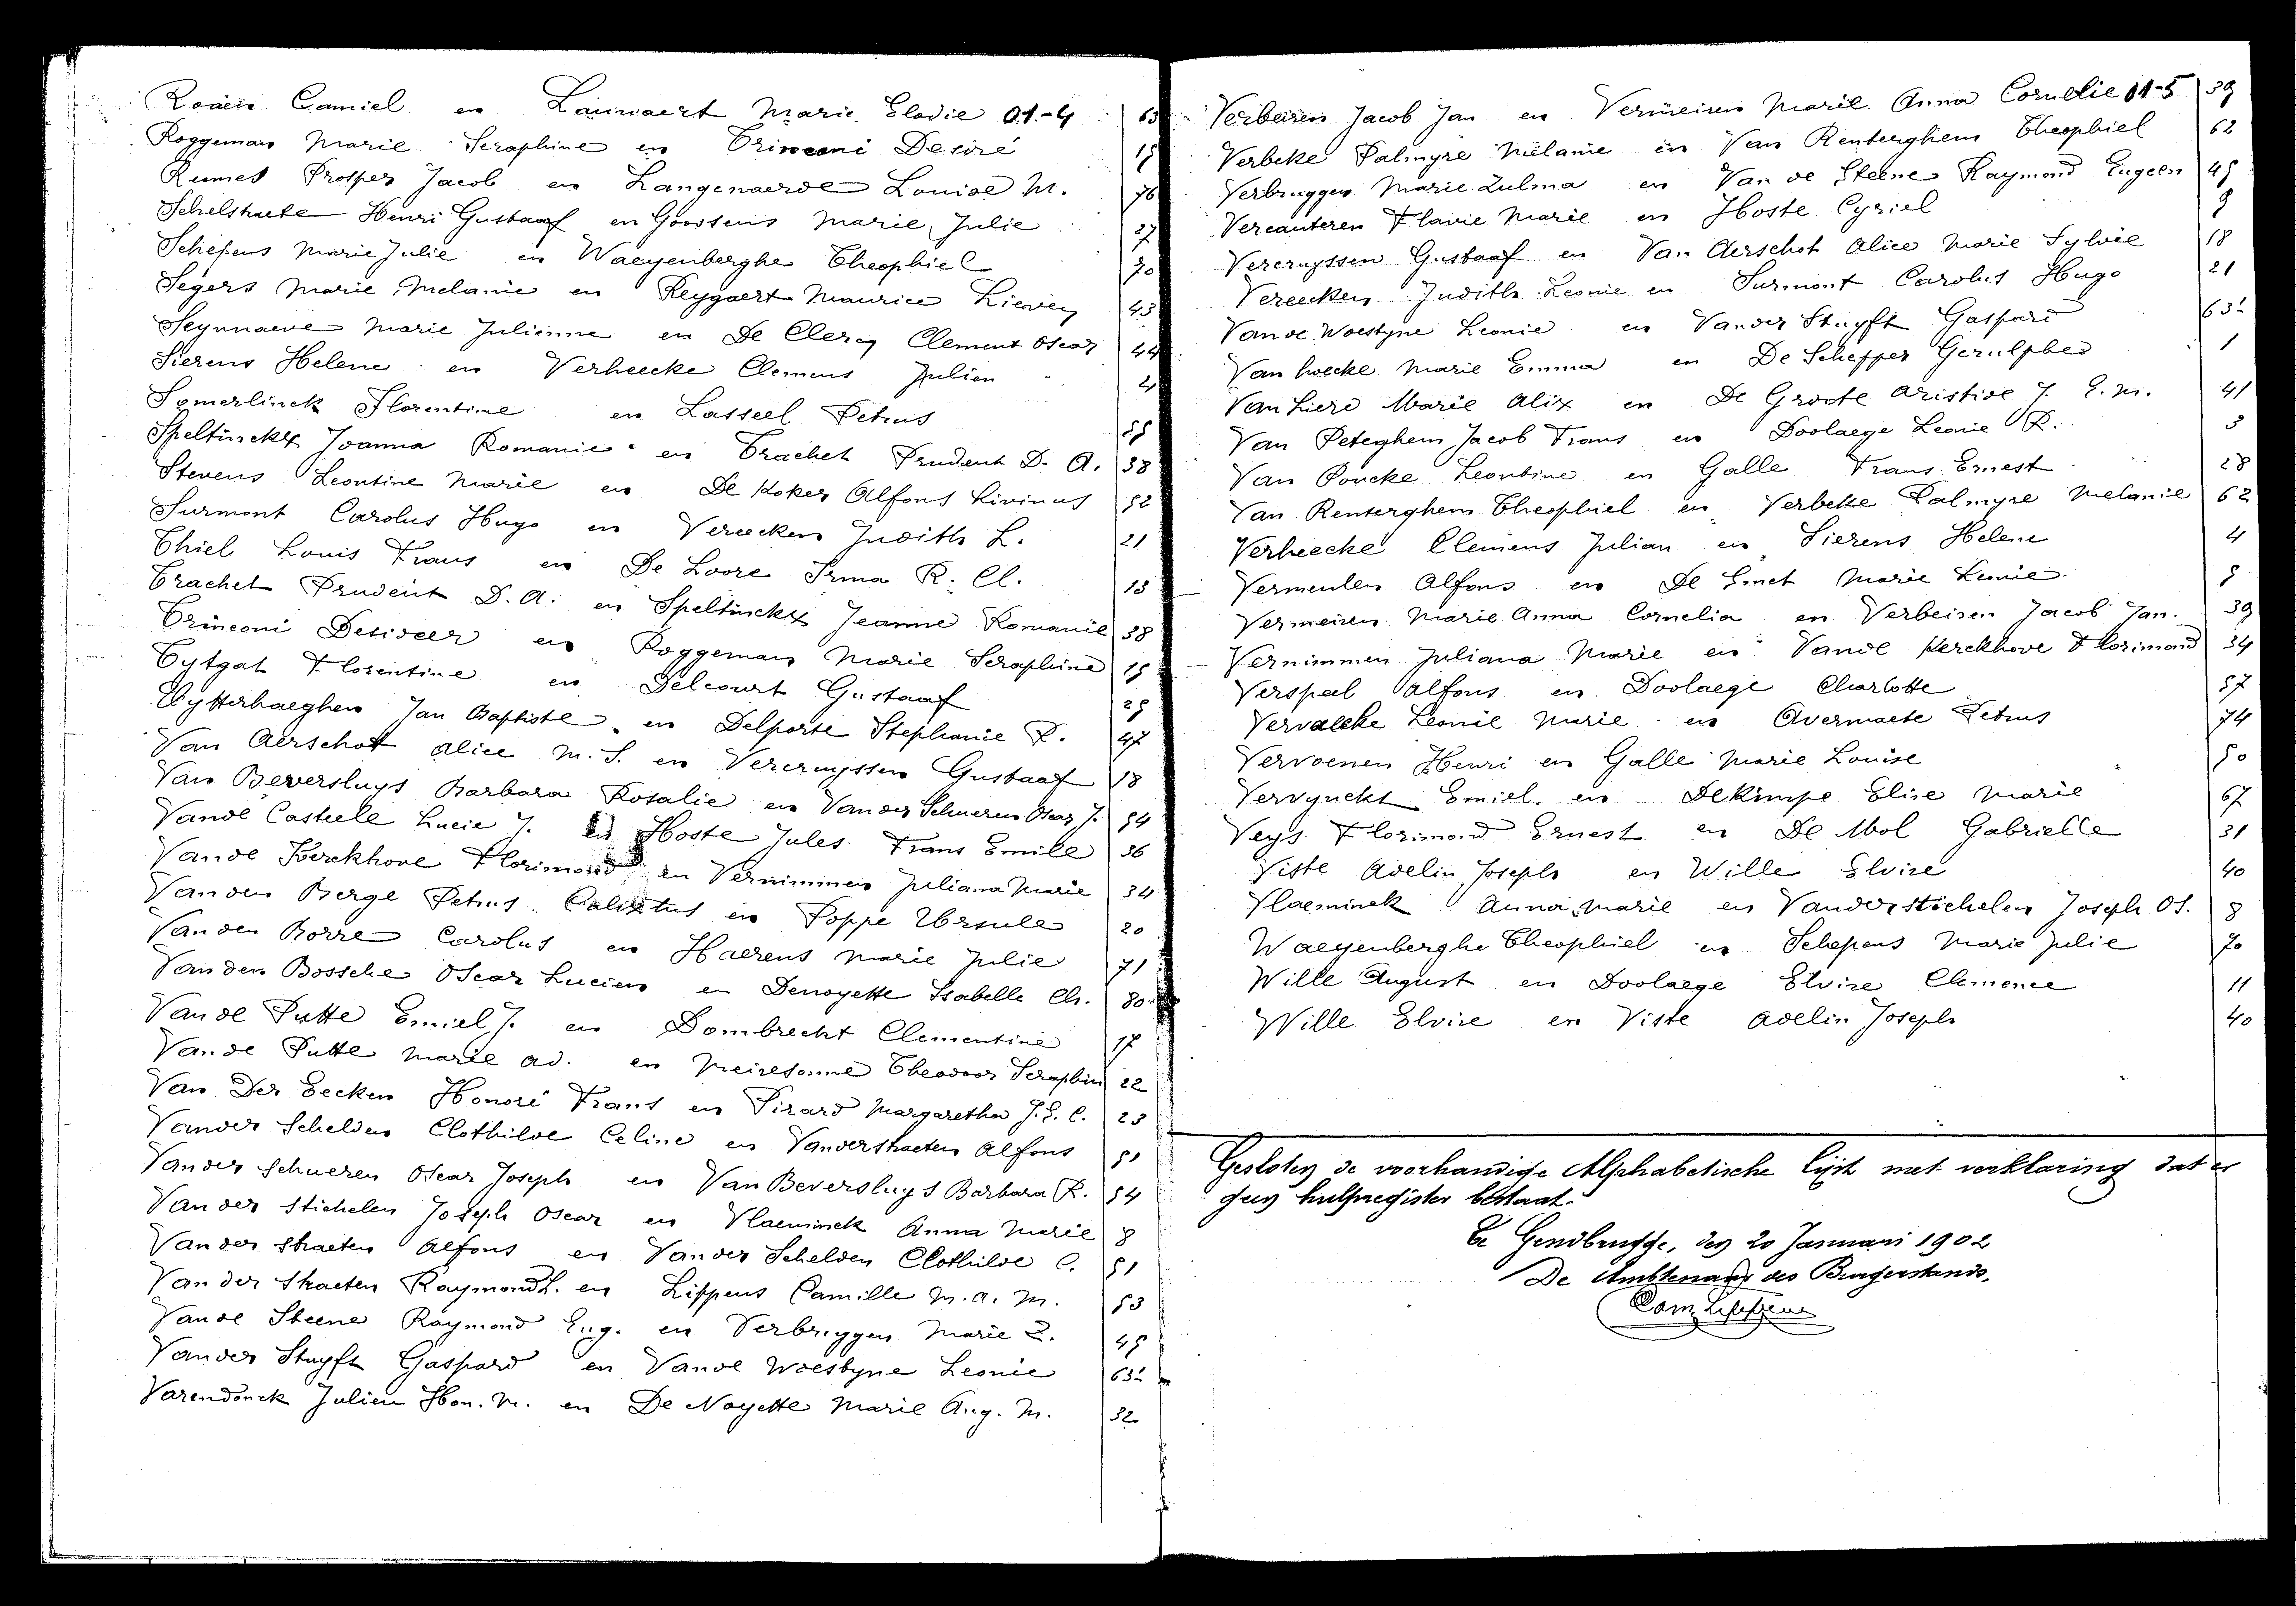 Camiel en Lannaert Marie Elodie 01-4 63
Roggeman Marie Seraphine en Trinconi Desiré 15
Rumes Prosper Jacob en Langenaerde Louise M. 76
Schelstraete Henri Gustaaf en Goossens Marie Julie 27
Schepens Marie Julie en Waeyenberghe Theophiel 70
Segers Marie Melanie en Reygaert Maurice Lieven 43
Seynnaeve Marie Julienne en De Clercq Clement Oscar 44
Sierens Helene en Verheecke Clemens Julien 4
Somerlinck Florentine en Lasseel Petrus 55
Speltinckx Joanna Romanie en Trachet Prudent D. A. 38
Stevens Leontine Marie en De Koker Alfons Livinus 52
Surmont Carolus Hugo en Vereecken Judith L. 21
Thiel Louis Frans en De Loore Irma R. Cl. 13
Trachet Prudent D. A. en Speltinckx Jeanne Romanie 38
Trinconi Desideer en Roggeman Marie Seraphine 15
Tytgat Florentine en Delcourt Gustaaf 25
Uytterhaeghen Jan Baptiste en Delporte Stephanie R. 47
Van Aerschot Alice M. S. en Vercruyssen Gustaaf 18
Van Beversluys Barbara Rosalie en Van der Schueren Oscar J. 54
Vande Casteele Lucie J. en Hoste Jules Frans Emile 36
Vande Kerckhove Florimond en Vernimmen Juliana Marie 34
Vanden Berge Petrus Calixtus en Poppe Ursule 20
Vanden Borre Carolus en Haerens Marie Julie 71
Vanden Bossche Oscar Lucien en Denoyette Isabelle Ch. 80
Vande Putte Emiel J. en Dombrecht Clementine 17
Vande Putte Marie Ad. en Meiresonne Theodoor Seraphin 22
Van Der Eecken Honoré Frans en Pirard Margaretha J. E. C. 23
Vander Schelden Clothilde Celine en Vanderstraeten Alfons 51
Vander Schueren Oscar Joseph en Van Beversluys Barbara R. 54
Vander Stichelen Joseph Oscar en Vlaeminck Anna Marie 8
Vander Straeten Alfons en Vander Schelden Clothilde C. 51
Van der Straeten Raymond L. en Lippens Camille M. A. M. 53
Vande Steene Raymond Eug. en Verbruggen Marie Z. 45
Vander Stuyft Gaspard en Vande Woestyne Leonie 63
Varendonck Julien Hon. M. en De Noyette Marie Aug. M. 32
Verbeiren Jacob Jan en Vermeiren Marie Anna Cornelie 01-5 39
Verbeke Palmyre Melanie en Van Renterghem Theophiel 62
Verbruggen Marie Zulma en Van de Steene Raymond Eugeen 45
Vercauteren Flavie Marie en Hoste Cyriel 9
Vercruyssen Gustaaf en Van Aerschot Alice Marie Sylvie 18
Vereecken Judith Leonie en Surmont Carolus Hugo 21
Van de Woestyne Leonie en Vander Stuyft Gaspard 63
Van hoecke Marie Emma en De Schepper Gerulphes 1
Van Liere Marie Alix en De Groote Aristide J. E. M. 41
Van Peteghem Jacob Frans en Doolaege Leonie R. 3
Van Poucke Leontine en Galle Frans Ernest 28
Van Renterghem Theophiel en Verbeke Palmyre Melanie 62
Verheecke Clemens Julian en Sierens Helene 4
Vermeulen Alfons en De Smet Marie Leonie 5
Vermeiren Marie Anna Cornelia en Verbeiren Jacob Jan. 39
Vernimmen Juliana Marie en Vande Kerckhove Florimond 34
Verspeel Alfons en Doolaege Charlotte 57
Vervaecke Leonie Marie en Avermaete Petrus 74
Vervoenen Henri en Galle Marie Louise 50
Vervynckt Emiel en Dekimpe Elise Marie 67
Veys Florimond Ernest en De Mol Gabrielle 31
Viste Adelin Joseph en Wille Elvire 40
Vlaeminck Anna Marie en Vanderstichelen Joseph Os. 8
Waeyenberghe Theophiel en Schepens Marie Julie 70
Wille August en Doolaege Elvire Clemence 11
Wille Elvire en Viste Adelin Joseph 40
Gesloten de voorhandige Alphabetische lijst met verklaring dat er
geen hulpregister bestaat.
Te Gendbrugge, den 20 Januari 1902
De Ambtenaar des Burgerstands,